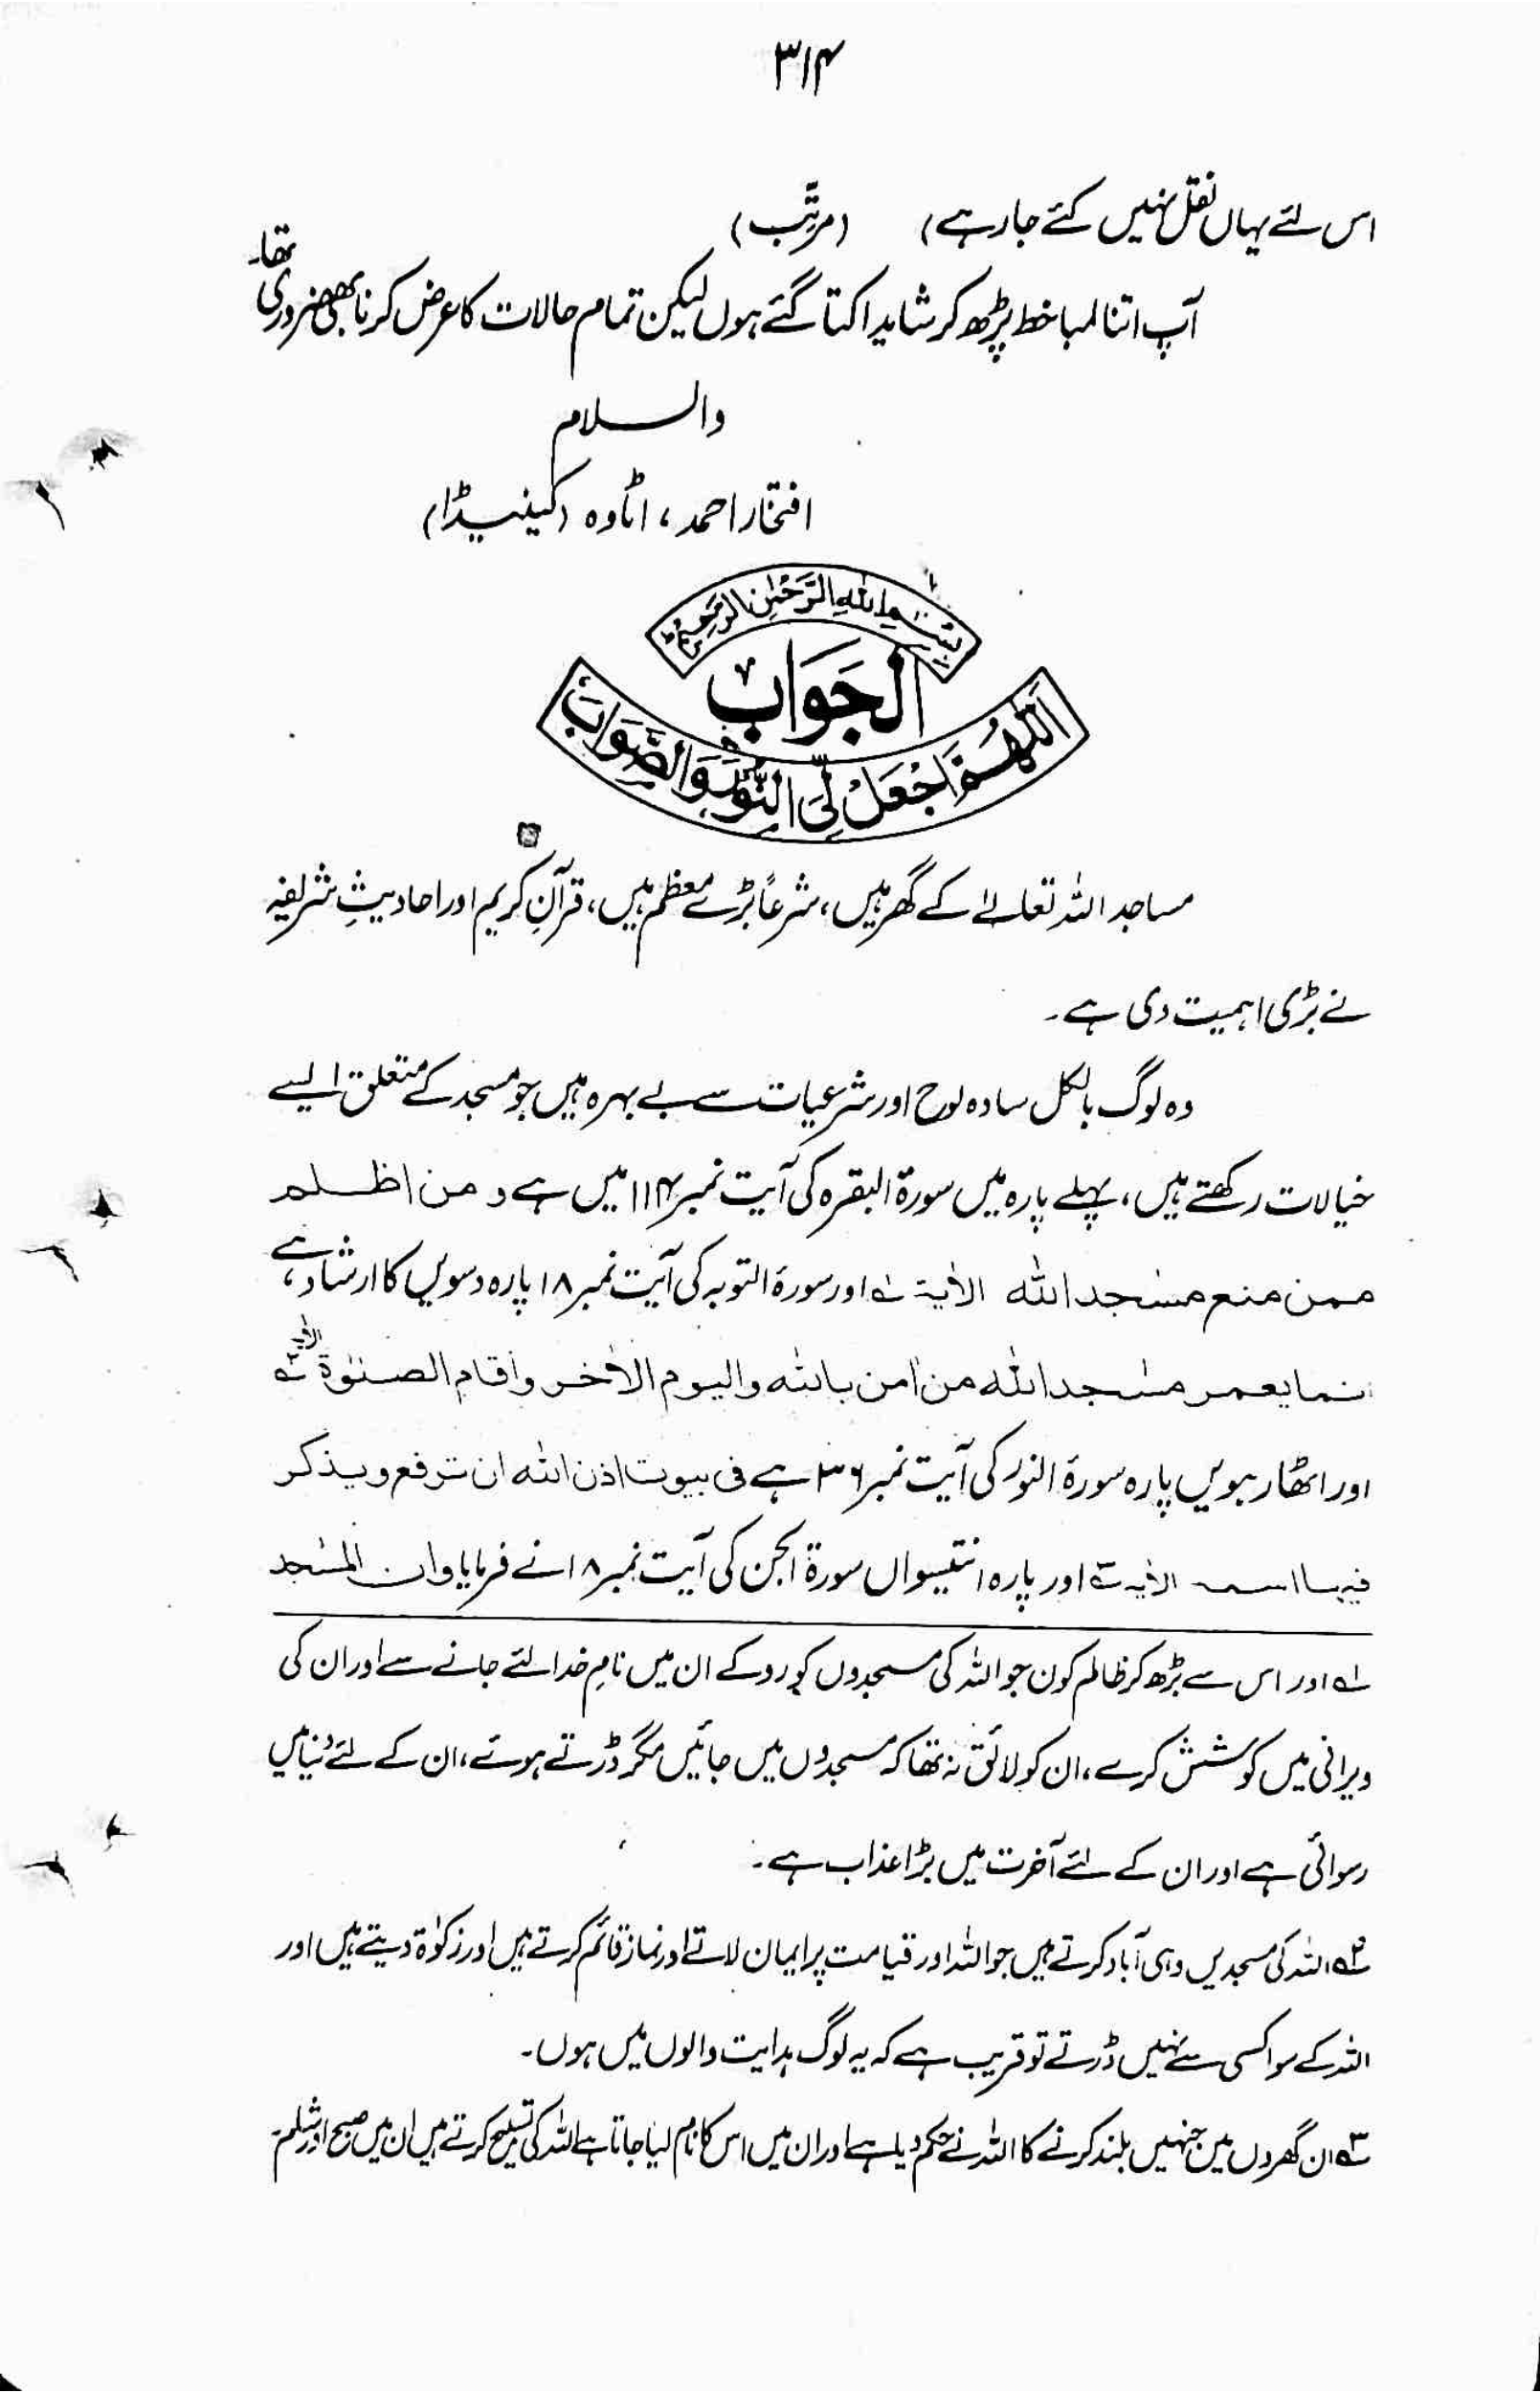 ۳۱۴
اس لئے یہاں نقل نہیں کئے جارہے) (مرتّب)
آپ اتنا لمبا خط پڑھ کر شاید اکتا گئے ہوں لیکن تمام حالات کا عرض کرنا بھی ضروری تھا۔
والسلام
افتخار احمد، اٹاوہ (کینیڈا)
بِسْمِ اللهِ الرَّحْمٰنِ الرَّحِيْمِ
الجَوَاب
اَللّٰهُمَّ اجْعَلْ لِّيَ النُّوْرَ وَالصَّوَابَ
مساجد اللہ تعالےٰ کے گھر ہیں، شرعاً بڑے معظم ہیں، قرآنِ کریم اور احادیثِ شریفہ
نے بڑی اہمیت دی ہے۔
وہ لوگ بالکل سادہ لوح اور شرعیات سے بے بہرہ ہیں جو مسجد کے متعلق ایسے
خیالات رکھتے ہیں، پہلے پارہ میں سورۃ البقرہ کی آیت نمبر ۱۱۴ میں ہے و من اظلم
ممن منع مسٰجد الله الاٰیۃ ؎۱ اور سورۃ التوبہ کی آیت نمبر ۱۸ پارہ دسویں کا ارشاد ہے،
انما یعمر مسٰجد الله من اٰمن بالله والیوم الاٰخر واقام الصلوٰۃ الاٰیۃ ؎۲
اور اٹھارہویں پارہ سورۃ النور کی آیت نمبر ۳۶ ہے فی بیوت اذن الله ان ترفع ویذکر
فیہا اسمہ الاٰیۃ ؎۳ اور پارہ انتیسواں سورۃ الجن کی آیت نمبر ۱۸ نے فرمایا وان المسٰجد
؎۱ اور اس سے بڑھ کر ظالم کون جو اللہ کی مسجدوں کو روکے ان میں نامِ خدا لئے جانے سے اور ان کی
ویرانی میں کوشش کرے، ان کو لائق نہ تھا کہ مسجدوں میں جائیں مگر ڈرتے ہوئے، ان کے لئے دُنیا میں
رسوائی ہے اور ان کے لئے آخرت میں بڑا عذاب ہے۔
؎۲ اللہ کی مسجدیں وہی آباد کرتے ہیں جو اللہ اور قیامت پر ایمان لاتے اور نماز قائم کرتے ہیں اور زکوٰۃ دیتے ہیں اور
اللہ کے سوا کسی سے نہیں ڈرتے تو قریب ہے کہ یہ لوگ ہدایت والوں میں ہوں۔
؎۳ ان گھروں میں جنہیں بلند کرنے کا اللہ نے حکم دیا ہے اور ان میں اس کا نام لیا جاتا ہے اللہ کی تسبیح کرتے ہیں ان میں صبح اور شام۔